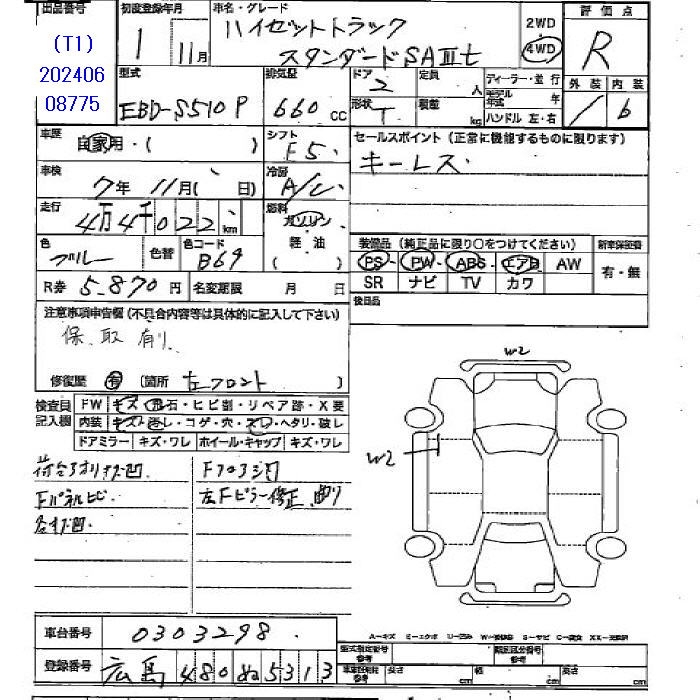 出品番号 初度登録年月 車名・グレード 2WD 評価点
(T1) 1 11月 ハイゼットトラック 4WD R
202406 スタンダードSAⅢt
08775 型式 排気量 ドア 定員 ディーラー・並行 外装 内装
EBD-S510P 660 CC 2 人 モデル年式 年 / 6
形状 T 積載 kg ハンドル 左・右
車歴 自家用・( ) シフト F5 セールスポイント (正常に機能するものに限ります)
車検 7年 11月( 日) 冷房 A/C キーレス
走行 4万4千022 km 燃料 ガソリン
軽油 ( )
色 ブルー 色替 色コード B69 装備品 (純正品に限り○をつけてください) 新車保証書
PS PW ABS エアB AW 有・無
R券 5,870円 名変期限 月 日 SR ナビ TV カワ
後日品
注意事項申告欄 (不具合内容等は具体的に記入して下さい)
保、取有り、
修復歴 有 (箇所 左フロント )
検査員記入欄 FW キズ・飛石・ヒビ割・リペア跡・X要
内装 キズ・汚レ・コゲ・穴・スレ・ヘタリ・破レ
ドアミラー キズ・ワレ ホイール・キャップ キズ・ワレ
W2
W2
Fパネルヒビ 左Fピラー修正、曲り
車台番号 0303298
登録番号 広島 480 ぬ 5313
型式指定番号 参考 類別区分番号 参考
長さ cm 幅 cm 高さ cm